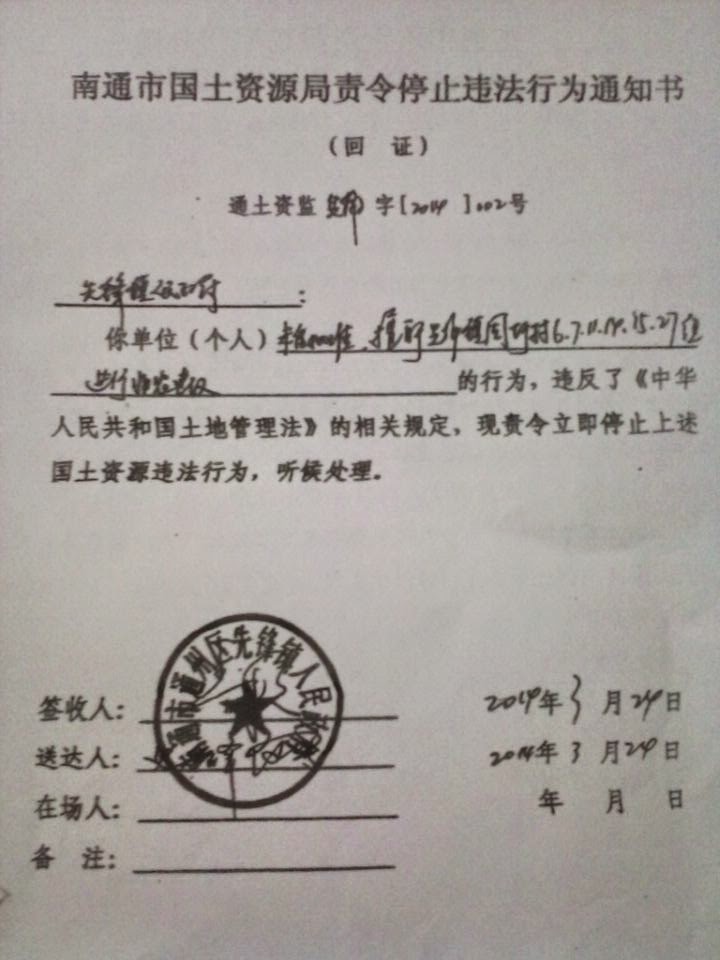 南通市国土资源局责令停止违法行为通知书
(回 证)
通土资监 字[2014]002号
先锋镇人民政府:
你单位(个人)未经批准,擅自 先锋镇周圩村6.7.11.14.15.27组
进行非农建设的行为,违反了《中华
人民共和国土地管理法》的相关规定,现责令立即停止上述
国土资源违法行为,听候处理。
南通市通州区先锋镇人民政府
签收人: 2014年3月24日
送达人: 2014年3月24日
在场人: 年 月 日
备 注: